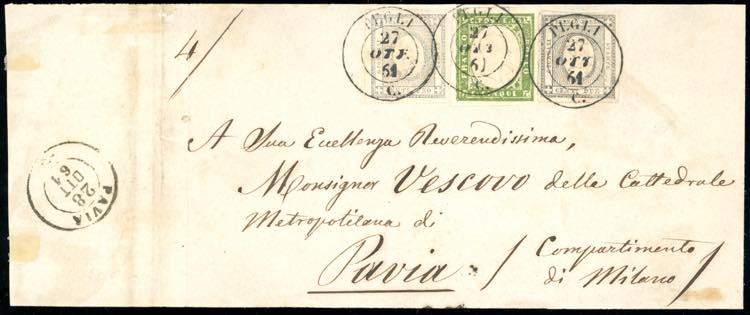 PEGLI
27
OTT
61
C.
PEGLI
27
OTT
61
C.
PEGLI
27
OTT
61
C.
C. POSTE
CINQUE
4/
A Sua Eccellenza Reverendissima,
Monsignor Vescovo della Cattedrale
Metropolitana di
Pavia / Compartimento
di Milano /
PAVIA
28
OTT
61